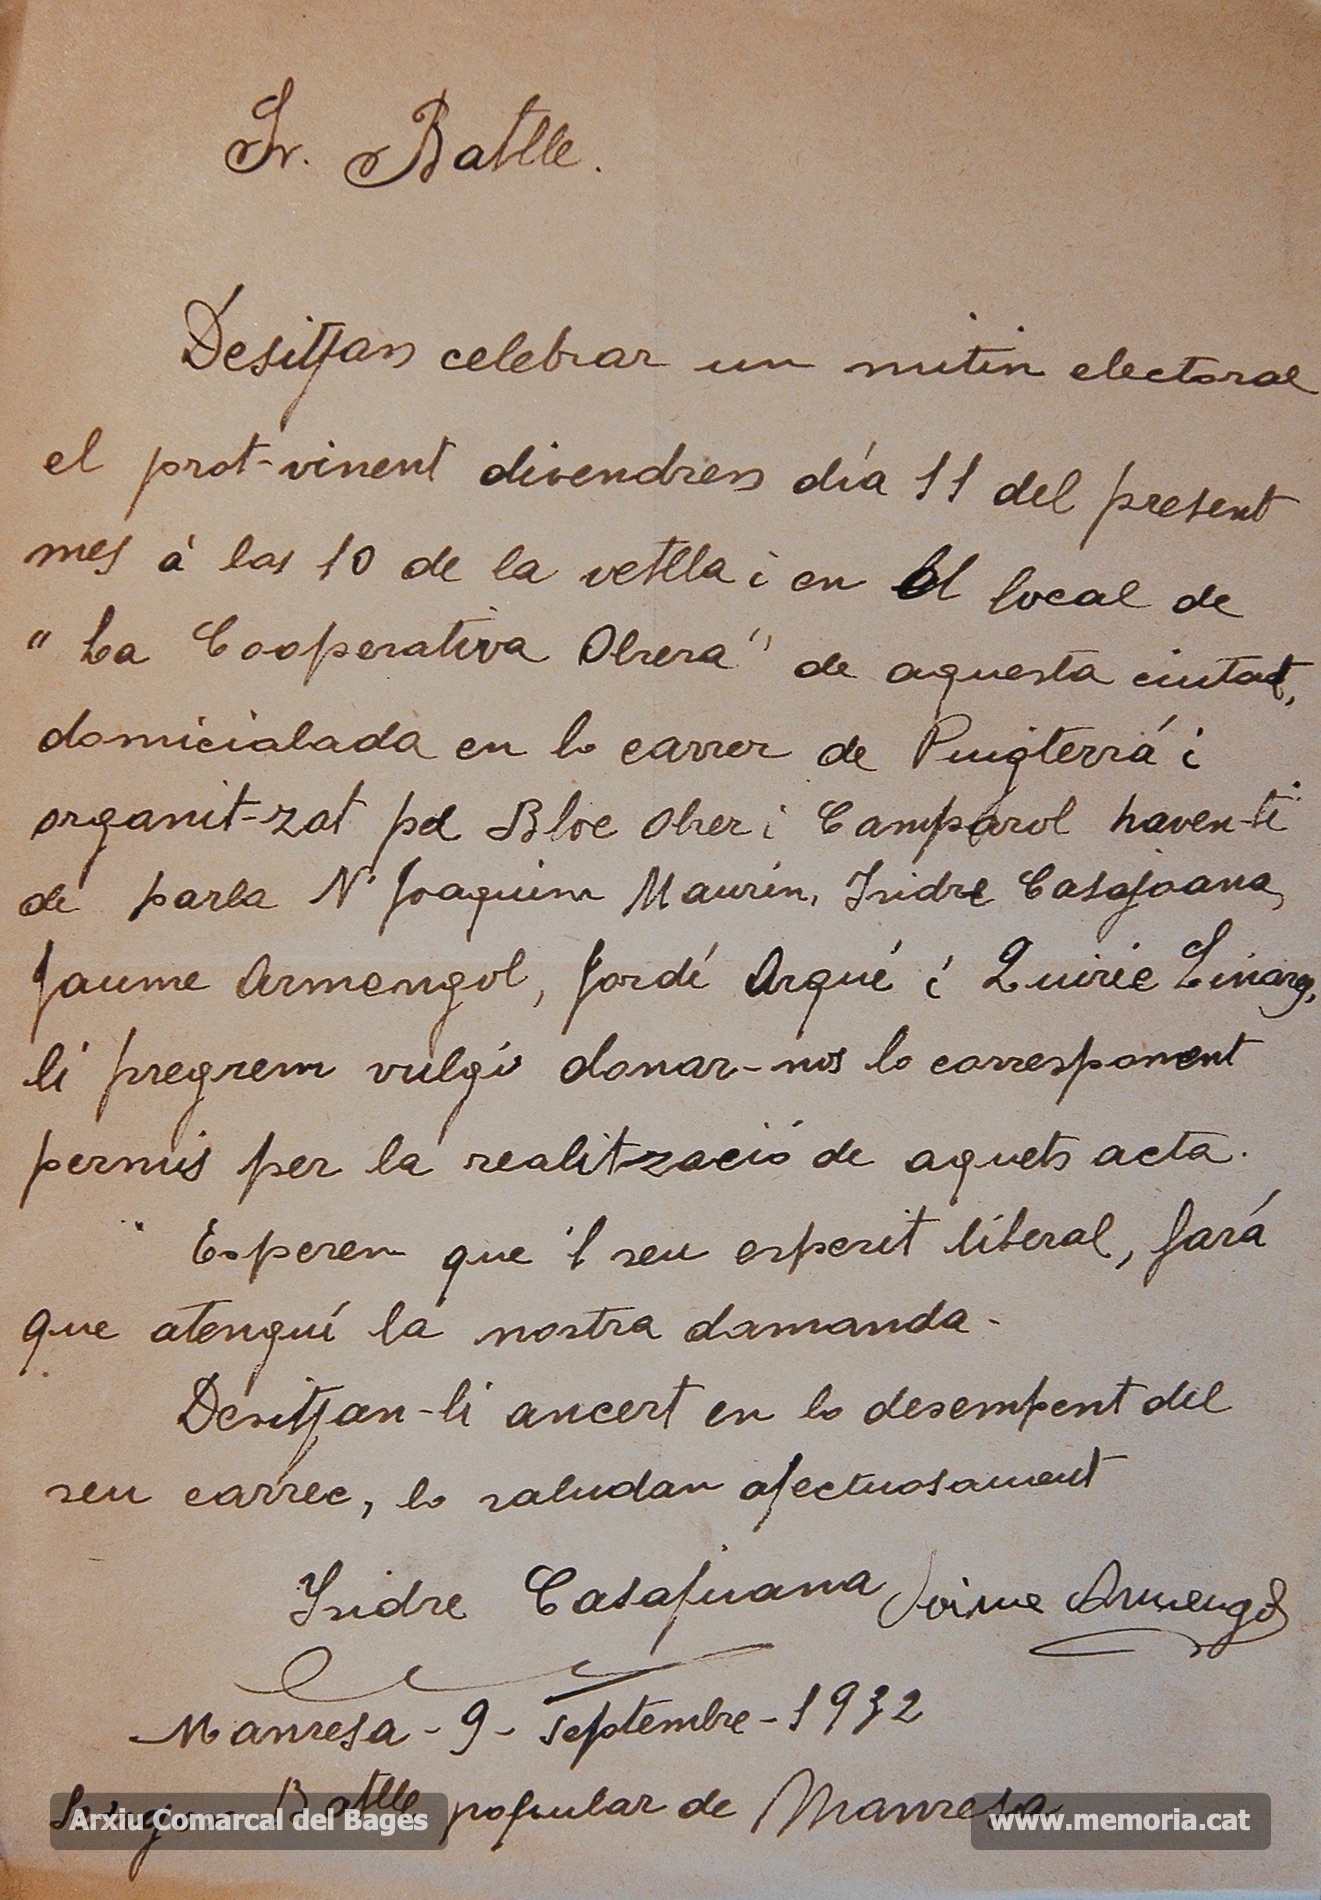 Sr. Batlle.
Desitjan celebrar un mitin electoral
el prot-vinent divendres día 11 del present
mes á las 10 de la vetlla i en el local de
"La Cooperativa Obrera" de aquesta ciutat,
domicialada en lo carrer de Puigterrá i
organit-zat pel Bloc Obrer i Camparol haven-ti
de parla N' Joaquim Maurin, Isidre Casajoana,
Jaume Armengol, Jordí Arqué i Quiric Linares,
li pregrem vulgi donar-nos lo corresponent
permis per la realit-zació de aquets acta.
Esperem que 'l seu esperit liberal, fará
que atenguí la nostra damanda.
Desitjan-li ancert en lo desempent del
seu carrec, lo saludan afectuosament
Isidre Casajuana Jaime Armengol
Manresa - 9 - septembre - 1932
Batlle popular de Manresa
Arxiu Comarcal del Bages
www.memoria.cat